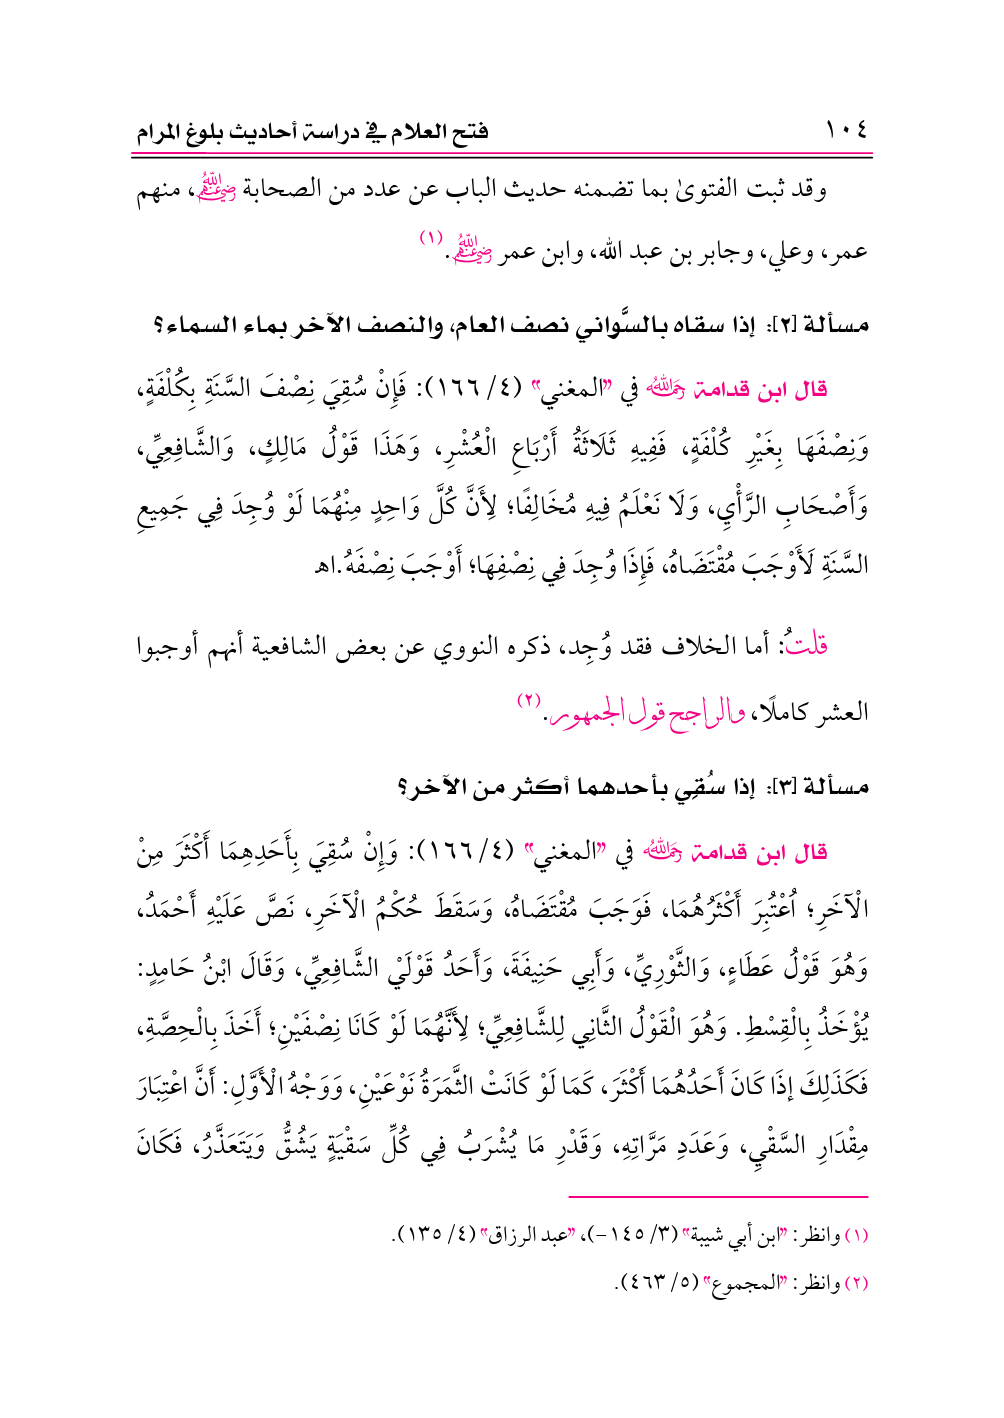 ١٠٤ فتح العلام في دراسة أحاديث بلوغ المرام
وقد ثبت الفتوىٰ بما تضمنه حديث الباب عن عدد من الصحابة رضي الله عنهم، منهم
عمر، وعلي، وجابر بن عبد الله، وابن عمر رضي الله عنهم.(١)
مسألة [٢]: إذا سقاه بالسَّواني نصف العام، والنصف الآخر بماء السماء؟
قال ابن قدامة رحمه الله في "المغني" (٤/ ١٦٦): فَإِنْ سُقِيَ نِصْفَ السَّنَةِ بِكُلْفَةٍ،
وَنِصْفَهَا بِغَيْرِ كُلْفَةٍ، فَفِيهِ ثَلَاثَةُ أَرْبَاعِ الْعُشْرِ، وَهَذَا قَوْلُ مَالِكٍ، وَالشَّافِعِيِّ،
وَأَصْحَابِ الرَّأْيِ، وَلَا نَعْلَمُ فِيهِ مُخَالِفًا؛ لِأَنَّ كُلَّ وَاحِدٍ مِنْهُمَا لَوْ وُجِدَ فِي جَمِيعِ
السَّنَةِ لَأَوْجَبَ مُقْتَضَاهُ، فَإِذَا وُجِدَ فِي نِصْفِهَا؛ أَوْجَبَ نِصْفَهُ.اهـ
قلتُ: أما الخلاف فقد وُجِد، ذكره النووي عن بعض الشافعية أنهم أوجبوا
العشر كاملًا، والراجح قول الجمهور.(٢)
مسألة [٣]: إذا سُقِي بأحدهما أكثر من الآخر؟
قال ابن قدامة رحمه الله في "المغني" (٤/ ١٦٦): وَإِنْ سُقِيَ بِأَحَدِهِمَا أَكْثَرَ مِنْ
الْآخَرِ؛ اُعْتُبِرَ أَكْثَرُهُمَا، فَوَجَبَ مُقْتَضَاهُ، وَسَقَطَ حُكْمُ الْآخَرِ، نَصَّ عَلَيْهِ أَحْمَدُ،
وَهُوَ قَوْلُ عَطَاءٍ، وَالثَّوْرِيِّ، وَأَبِي حَنِيفَةَ، وَأَحَدُ قَوْلَيْ الشَّافِعِيِّ، وَقَالَ ابْنُ حَامِدٍ:
يُؤْخَذُ بِالْقِسْطِ. وَهُوَ الْقَوْلُ الثَّانِي لِلشَّافِعِيِّ؛ لِأَنَّهُمَا لَوْ كَانَا نِصْفَيْنِ؛ أَخَذَ بِالْحِصَّةِ،
فَكَذَلِكَ إذَا كَانَ أَحَدُهُمَا أَكْثَرَ، كَمَا لَوْ كَانَتْ الثَّمَرَةُ نَوْعَيْنِ، وَوَجْهُ الْأَوَّلِ: أَنَّ اعْتِبَارَ
مِقْدَارِ السَّقْيِ، وَعَدَدِ مَرَّاتِهِ، وَقَدْرِ مَا يُشْرَبُ فِي كُلِّ سَقْيَةٍ يَشُقُّ وَيَتَعَذَّرُ، فَكَانَ
(١) وانظر: "ابن أبي شيبة" (٣/ ١٤٥-)، "عبد الرزاق" (٤/ ١٣٥).
(٢) وانظر: "المجموع" (٥/ ٤٦٣).